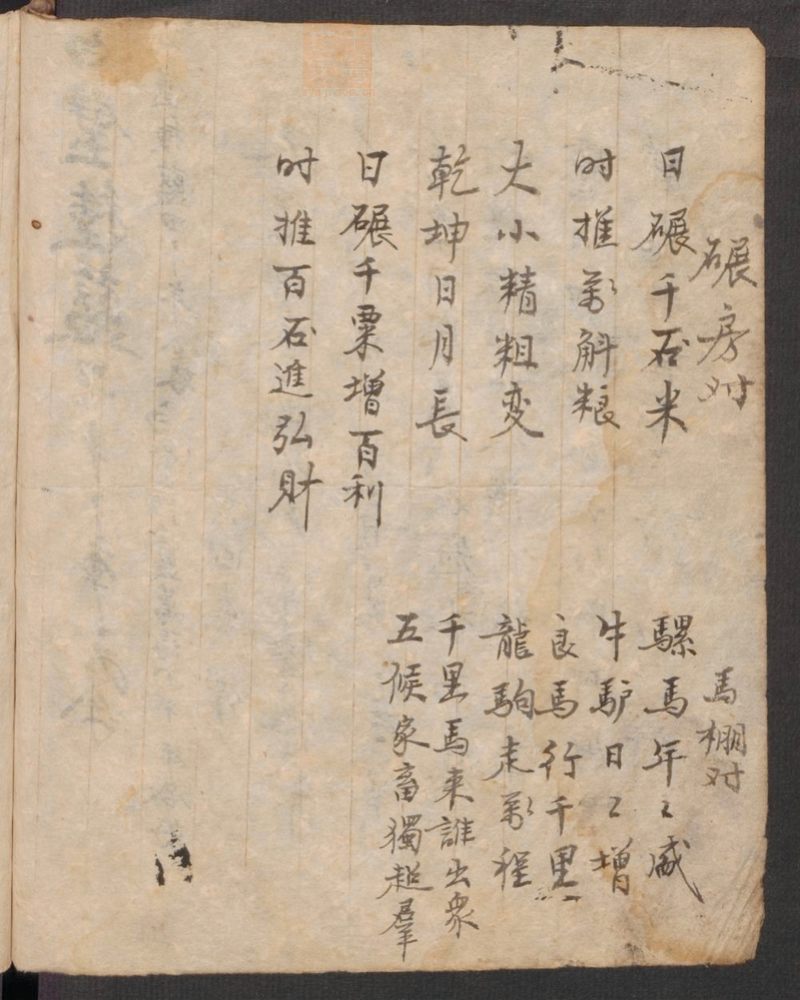 碾房对
日碾千石米
时推万斛粮
大小精粗变
乾坤日月長
日碾千粟增百利
时推百石進弘財
馬棚对
騾馬年々盛
牛馿日々增
良馬行千里
龍駒走万程
千里馬来誰出衆
五候家畜獨超羣